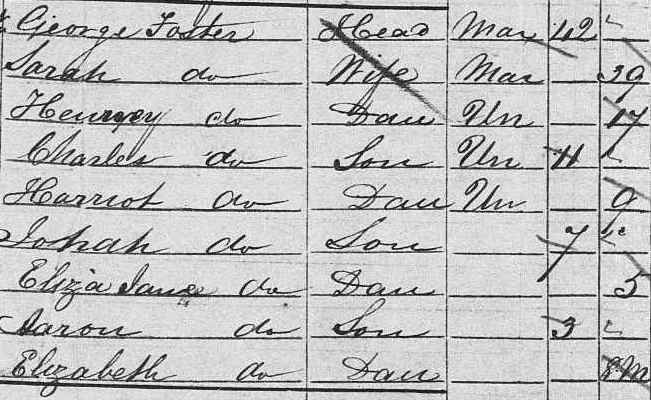 George Foster Head Mar 42
Sarah do Wife Mar 39
Henrey do Dau Un 17
Charles do Son Un 11
Harriot do Dau Un 9
Josiah do Son 7
Eliza Jane do Dau 5
Aaron do Son 3
Elizabeth do Dau 8m